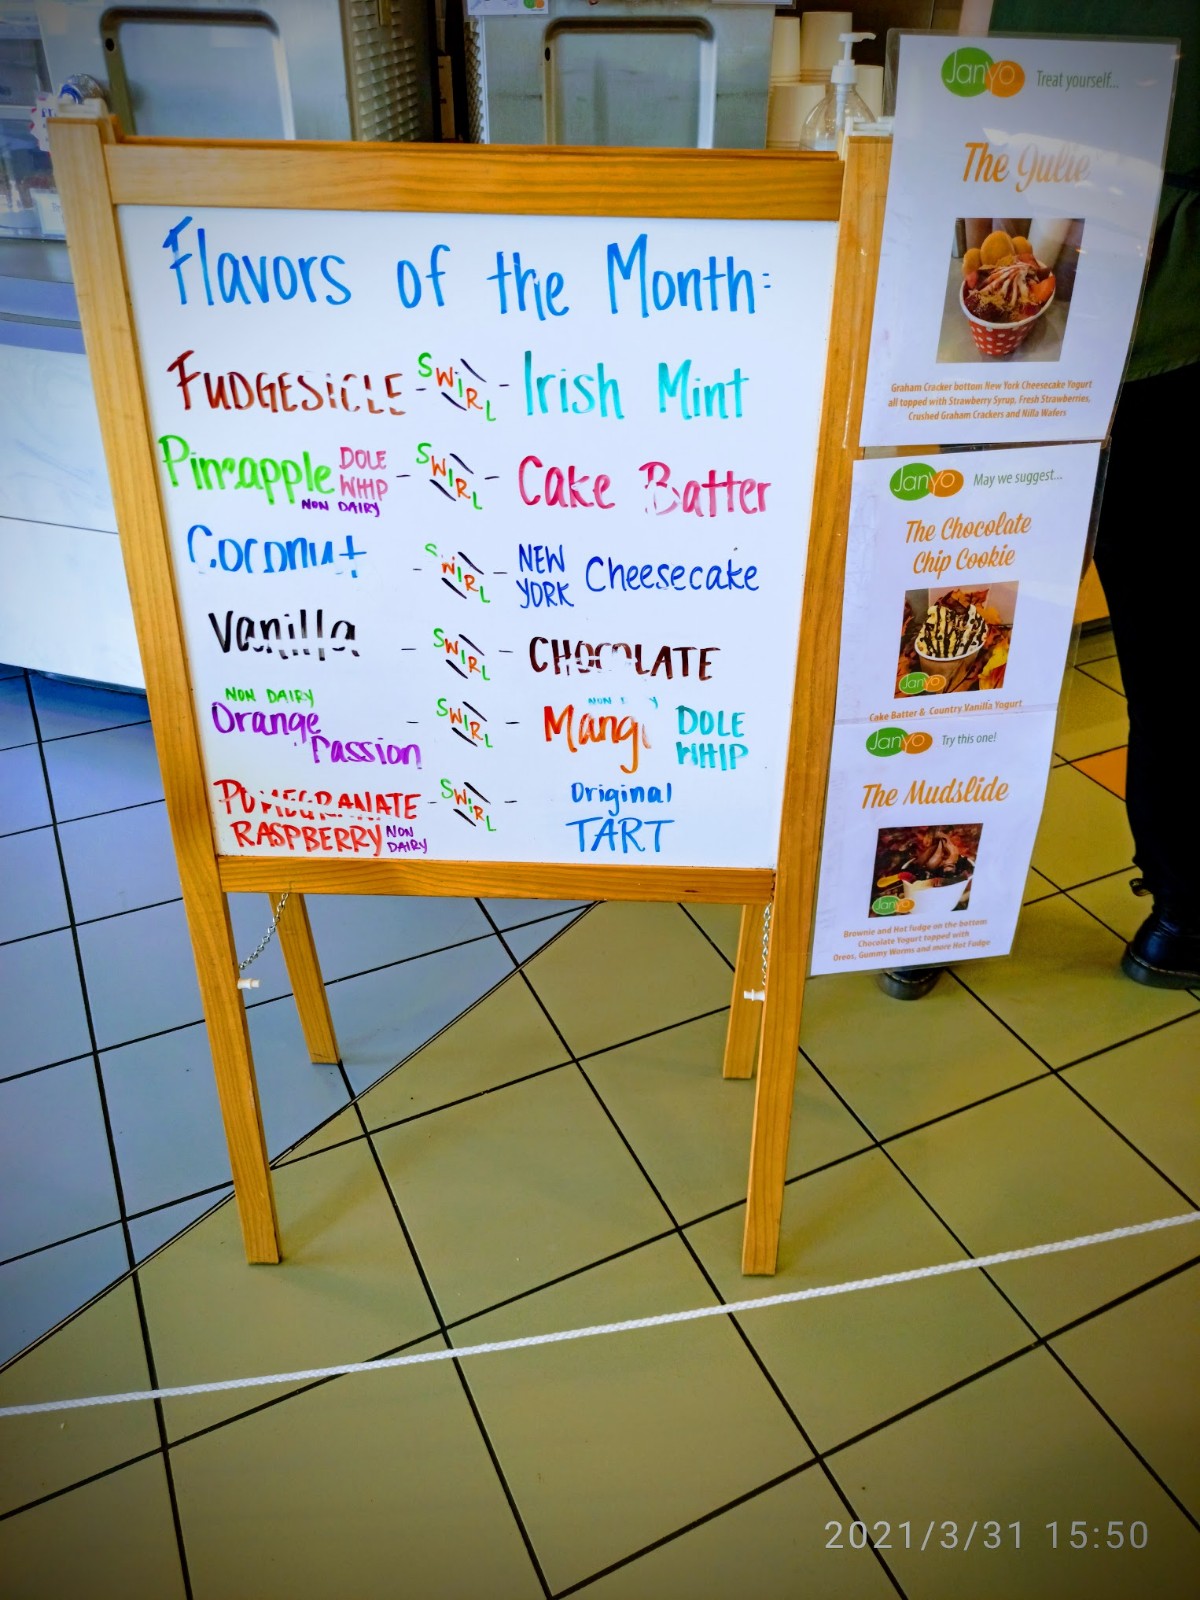 Flavors of the Month:
FUDGESICLE - SWIRL - Irish Mint
Pineapple DOLE WHIP NON DAIRY - SWIRL - Cake Batter
Coconut - SWIRL - NEW YORK Cheesecake
Vanilla - SWIRL - CHOCOLATE
NON DAIRY
Orange Passion - SWIRL - Mang DOLE WHIP
POMEGRANATE RASPBERRY NON DAIRY - SWIRL - Original TART
JanYo Treat yourself...
The Julie
Graham Cracker bottom New York Cheesecake Yogurt
all topped with Strawberry Syrup, Fresh Strawberries,
Crushed Graham Crackers and Nilla Wafers
JanYo May we suggest...
The Chocolate
Chip Cookie
JanYo
Cake Batter & Country Vanilla Yogurt
JanYo Try this one!
The Mudslide
JanYo
Brownie and Hot fudge on the bottom
Chocolate Yogurt topped with
Oreos, Gummy Worms and more Hot Fudge
2021/3/31 15:50